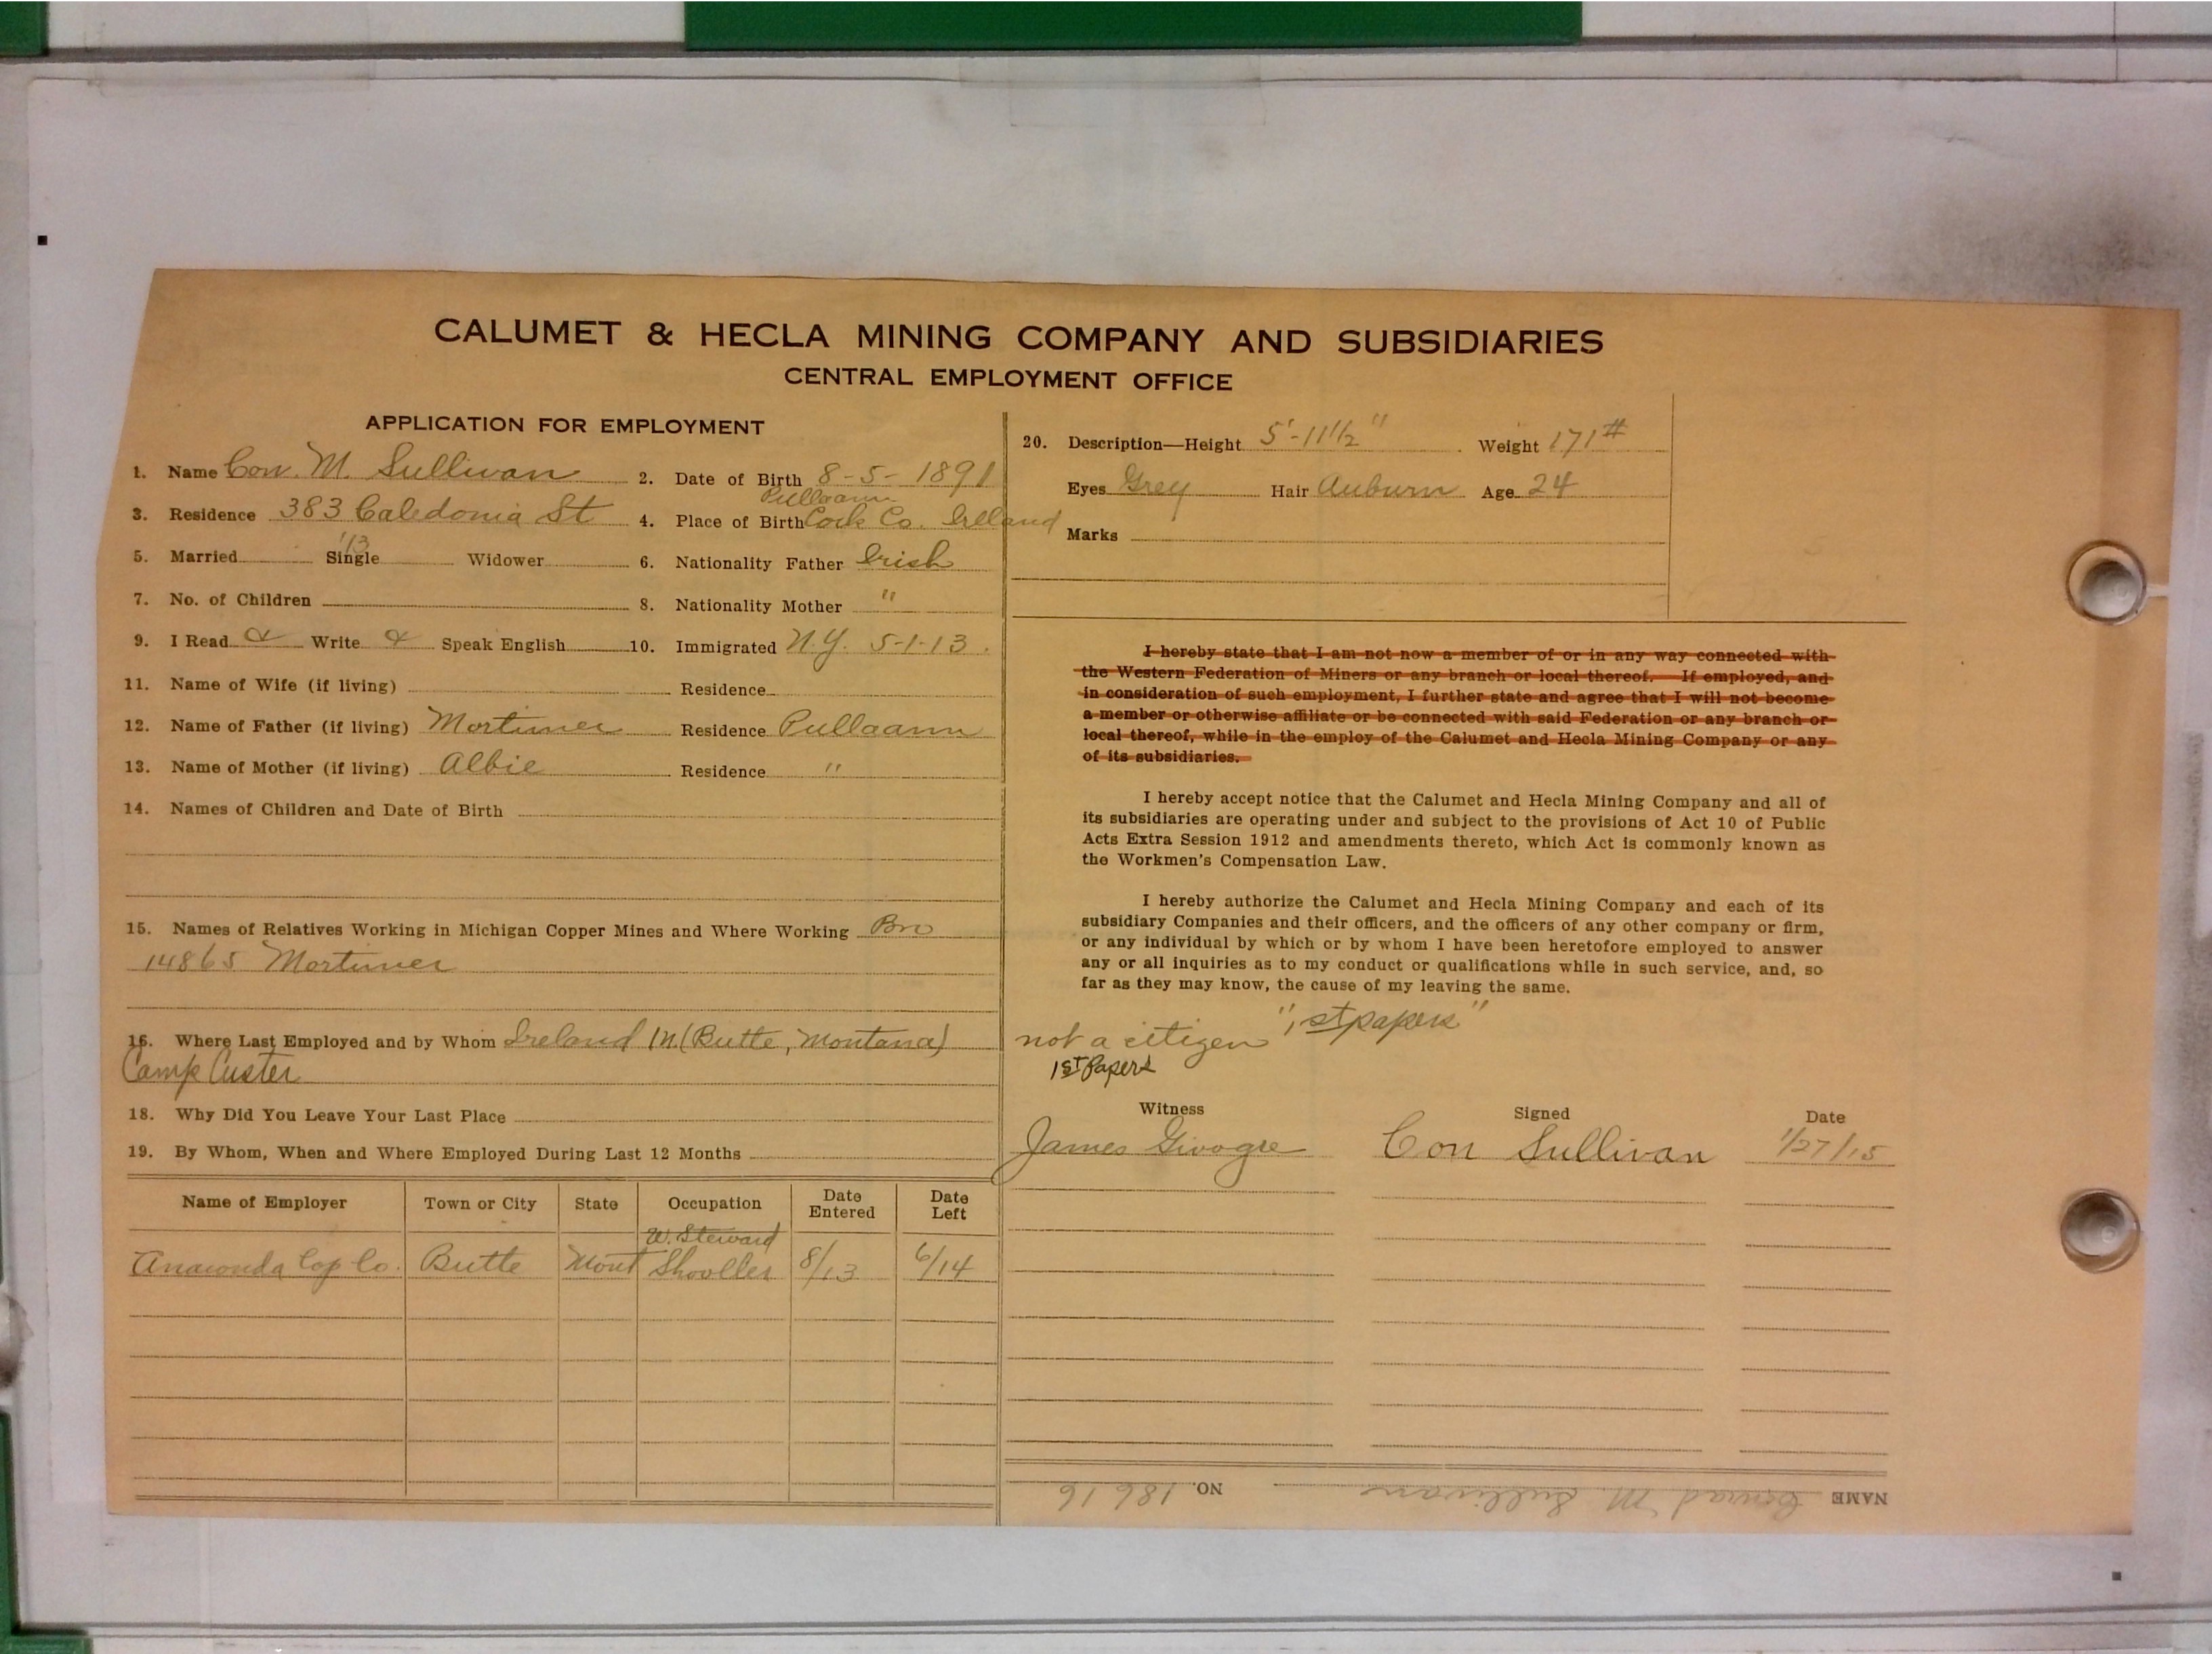 CALUMET & HECLA MINING COMPANY AND SUBSIDIARIES
CENTRAL EMPLOYMENT OFFICE
APPLICATION FOR EMPLOYMENT
1. Name Con. M. Sullivan 2. Date of Birth 8-5-1891
Pullaann
3. Residence 383 Caledonia St 4. Place of Birth Cork Co. Ireland
'13
5. Married Single Widower 6. Nationality Father Irish
7. No. of Children 8. Nationality Mother "
9. I Read & Write & Speak English 10. Immigrated N.Y. 5-1-13.
11. Name of Wife (if living) Residence
12. Name of Father (if living) Mortimer Residence Pullaann
13. Name of Mother (if living) Albie Residence "
14. Names of Children and Date of Birth
15. Names of Relatives Working in Michigan Copper Mines and Where Working Bro
14865 Mortimer
16. Where Last Employed and by Whom Ireland (Butte, Montana)
Camp Custer
18. Why Did You Leave Your Last Place
19. By Whom, When and Where Employed During Last 12 Months
Name of Employer Town or City State Occupation Date Entered Date Left
W. Steward
Anaconda Cop Co. Butte Mont Shoveller 8/13 6/14
20. Description—Height 5'-11 1/2" Weight 171#
Eyes Grey Hair Auburn Age 24
Marks
I hereby state that I am not now a member of or in any way connected with
the Western Federation of Miners or any branch or local thereof. If employed, and
in consideration of such employment, I further state and agree that I will not become
a member or otherwise affiliate or be connected with said Federation or any branch or
local thereof, while in the employ of the Calumet and Hecla Mining Company or any
of its subsidiaries.
I hereby accept notice that the Calumet and Hecla Mining Company and all of
its subsidiaries are operating under and subject to the provisions of Act 10 of Public
Acts Extra Session 1912 and amendments thereto, which Act is commonly known as
the Workmen's Compensation Law.
I hereby authorize the Calumet and Hecla Mining Company and each of its
subsidiary Companies and their officers, and the officers of any other company or firm,
or any individual by which or by whom I have been heretofore employed to answer
any or all inquiries as to my conduct or qualifications while in such service, and, so
far as they may know, the cause of my leaving the same.
not a citizen "1st papers"
1st Papers
Witness Signed Date
James Con Sullivan 1/27/15
NAME Conrad M. Sullivan NO. 18616